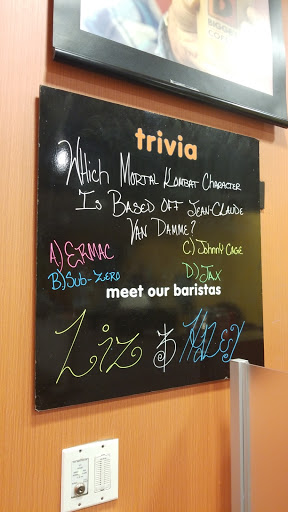 trivia
Which Mortal Kombat Character
Is Based off Jean-Claude
Van Damme?
A) Ermac
C) Johnny Cage
B) Sub-Zero
D) Jax
meet our baristas
Liz & Haley